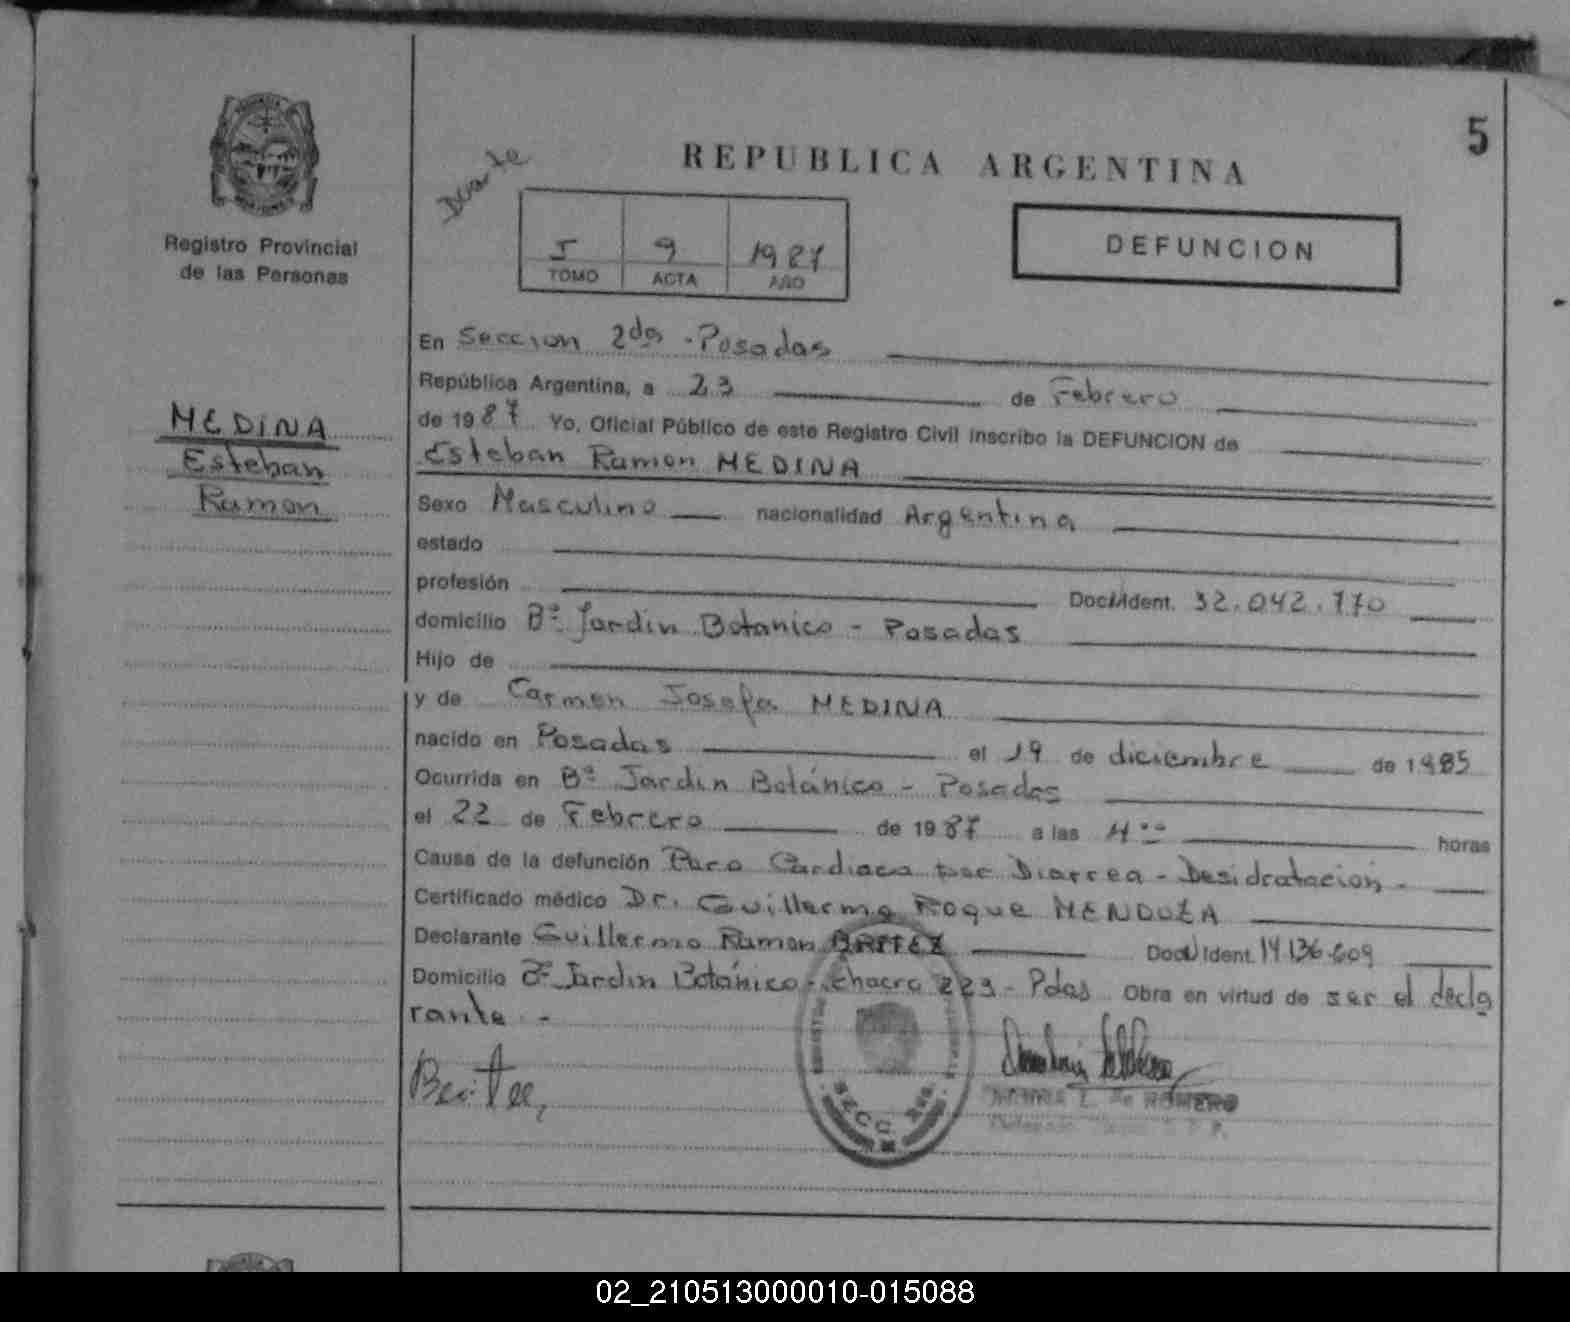 5
REPUBLICA ARGENTINA
Registro Provincial
de las Personas
I 9 1987
TOMO ACTA AÑO
DEFUNCION
MEDINA
Esteban
Ramon
En Seccion 2da - Posadas
República Argentina, a 23 de Febrero
de 1987 Yo, Oficial Público de este Registro Civil inscribo la DEFUNCION de
Esteban Ramon MEDINA
Sexo Masculino nacionalidad Argentina
estado
profesión Doc. Ident. 32.042.770
domicilio Bº Jardin Botanico - Posadas
Hijo de
y de Carmen Josefa MEDINA
nacido en Posadas el 19 de diciembre de 1985
Ocurrida en Bº Jardin Botánico - Posadas
el 22 de Febrero de 1987 a las horas
Causa de la defunción Paro Cardiaco por Diarrea - Desidratacion -
Certificado médico Dr. Guillermo Roque MENDOZA
Declarante Guillermo Ramon Doc. Ident. 14.136.609
Domicilio Bº Jardin Botánico - chacra 223 - Pdas Obra en virtud de ser el decla
rante -
SECC. 2da
L. de ROMERO
02_210513000010-015088